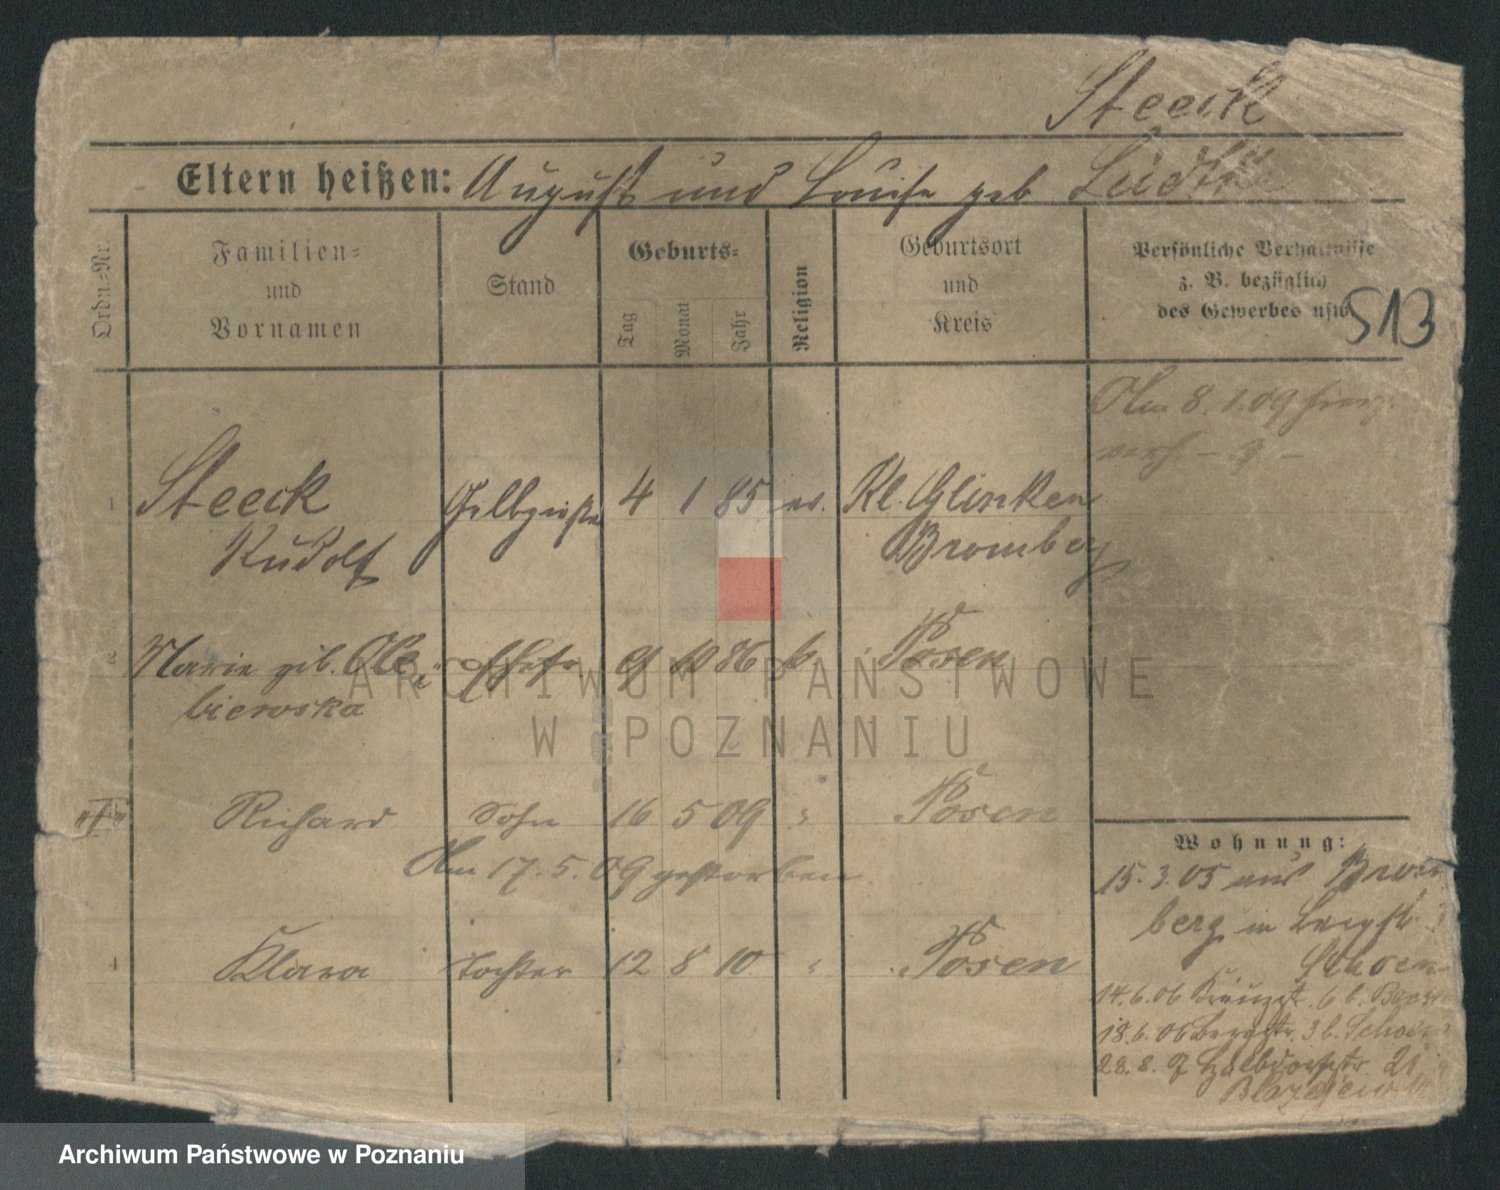 Steeck
Eltern heißen: August und Louise geb Lüdtke
Ordn.=Nr.
Familien=
und
Vornamen
Stand
Geburts=
Tag
Monat
Jahr
Religion
Geburtsort
und
Kreis
Persönliche Verhältnisse
z. B. bezüglich
des Gewerbes usw.
513
Am 8.1.09 hier
verh
1 Steeck Gelbgießer 4 1 85 ev. Kl. Glinken
Rudolf Bromberg
2 Marie geb. Ole= Ehefr 9 10 86 k Posen
biewska
Richard Sohn 16 5 09 " Posen
Am 17.5.09 gestorben
4 Klara Tochter 12 8 10 " Posen
Wohnung:
15.3.05 aus Brom
berg in Bergstr. 3
Schoen
14.6.06 Kreuzst. 6 b.
18.6.06 Bergstr. 3 b. Schoen
28.8. Halbdorfstr. 21
ARCHIWUM PAŃSTWOWE
W POZNANIU
Archiwum Państwowe w Poznaniu